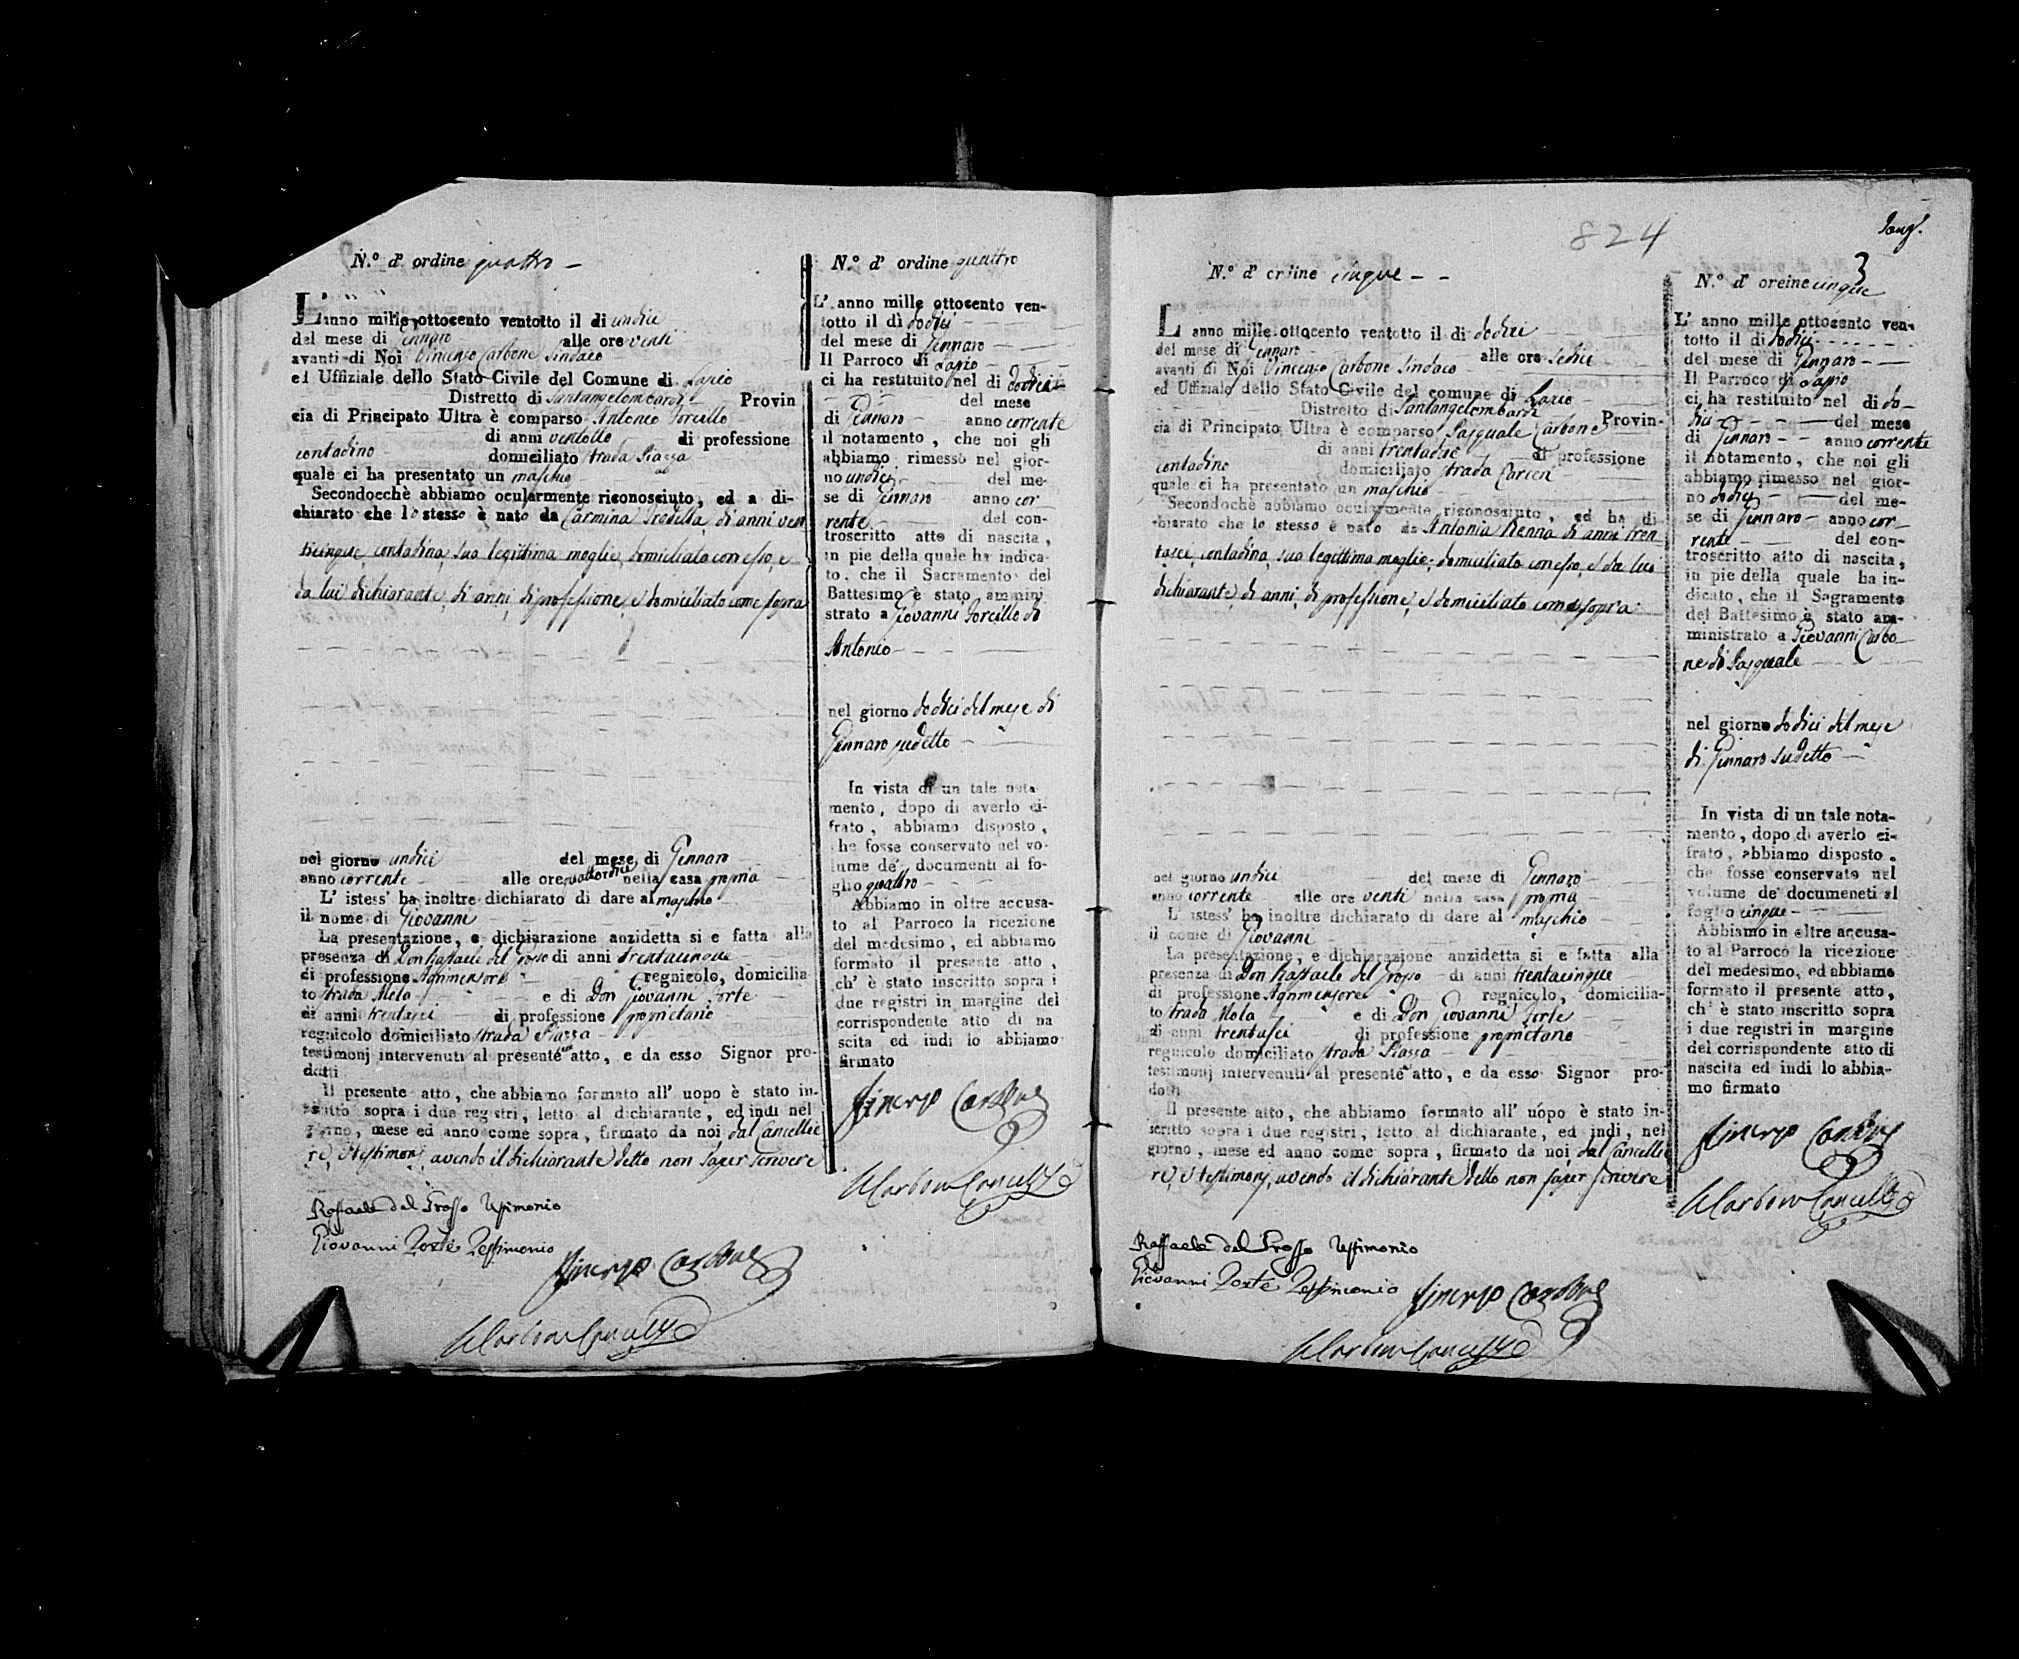 N.° d' ordine quattro
L'anno mille ottocento ventotto il di undici
del mese di Gennaro alle ore venti
avanti di Noi Vincenzo Carbone Sindaco
ed Uffiziale dello Stato Civile del Comune di Lapio
Distretto di Santangelombardi Provin
cia di Principato Ultra è comparso Antonio Forcillo
di anni ventotto di professione
contadino domiciliato strada Piazza
quale ci ha presentato un maschio
Secondocchè abbiamo ocularmente riconosciuto, ed a di-
chiarato che lo stesso è nato da Carmina di anni ven
ticinque, contadina, sua legittima moglie, domiciliato con esso, e
da lui dichiarante, di anni, di professione, e domiciliato come sopra
nel giorno undici del mese di Gennaro
anno corrente alle ore quattordici nella casa propria
L' istess' ha inoltre dichiarato di dare al maschio
il nome di Giovanni
La presentazione, e dichiarazione anzidetta si e fatta alla
presenza di Don Raffaele del Grosso di anni trentacinque
di professione Agrimensore regnicolo, domicilia
to strada Mela e di Don Giovanni Forte
di anni trentasei di professione proprietario
regnicolo domiciliato strada Piazza
testimonj intervenuti al presente atto, e da esso Signor pro-
dotti
Il presente atto, che abbiamo formato all' uopo è stato in-
scritto sopra i due registri, letto al dichiarante, ed indi nel
giorno, mese ed anno come sopra, firmato da noi dal Cancellie
re, e testimonj, avendo il dichiarante detto non saper scrivere
Raffaele del Grosso Testimonio
Giovanni Forte Testimonio
Vincenzo Carbone
Carbone Cancelliere
N.° d' ordine quattro
L' anno mille ottocento ven-
totto il dì dodici
del mese di Gennaro
Il Parroco di Lapio
ci ha restituito nel di dodici
del mese
di Gennaro anno corrente
il notamento, che noi gli
abbiamo rimesso nel gior-
no undici del me-
se di Gennaro anno cor
rente del con-
troscritto atto di nascita,
in pie della quale ha indica-
to, che il Sacramento del
Battesimo è stato ammini
strato a Giovanni Forcillo di
Antonio
nel giorno dodici del mese di
Gennaro sudetto
In vista di un tale nota
mento, dopo di averlo ci-
frato, abbiamo disposto,
che fosse conservato nel vo-
lume de' documenti al fo-
glio quattro
Abbiamo in oltre accusa-
to al Parroco la ricezione
del medesimo, ed abbiamo
formato il presente atto,
ch' è stato inscritto sopra i
due registri in margine del
corrispondente atto di na
scita ed indi lo abbiamo
firmato
Vincenzo Carbone
Carbone Cancelliere
824
3
N.° d' ordine cinque
L' anno mille ottocento ventotto il di dodici
del mese di Gennaro alle ore sedici
avanti di Noi Vincenzo Carbone Sindaco
ed Uffiziale dello Stato Civile del comune di Lapio
Distretto di Santangelombardi Provin-
cia di Principato Ultra è comparso Pasquale Carbone
di anni trentasei di professione
contadino domiciliato strada
quale ci ha presentato un maschio
Secondochè abbiamo ocularmente riconosciuto, ed ha di-
chiarato che lo stesso è nato da Antonia Renna di anni tren
tasei, contadina, sua legittima moglie, domiciliato con esso, e da lui
dichiarante, di anni, di professione, e domiciliato come sopra
nel giorno undici del mese di Gennaro
anno corrente alle ore venti nella casa propria
L' istess' ha inoltre dichiarato di dare al maschio
il nome di Giovanni
La presentazione, e dichiarazione anzidetta si e fatta alla
presenza di Don Raffaele del Grosso di anni trentacinque
di professione Agrimensore regnicolo, domicilia-
to strada Mela e di Don Giovanni Forte
di anni trentasei di professione proprietario
regnicolo domiciliato strada Piazza
testimonj intervenuti al presente atto, e da esso Signor pro-
dotti
Il presente atto, che abbiamo formato all' uopo è stato in-
scritto sopra i due registri, letto al dichiarante, ed indi, nel
giorno, mese ed anno come sopra, firmato da noi dal Cancellie
re, e testimonj, avendo il dichiarante detto non saper scrivere
Raffaele del Grosso Testimonio
Giovanni Forte Testimonio
Vincenzo Carbone
Carbone Cancelliere
N.° d' oreine cinque
L' anno mille ottocento ven-
totto il di dodici
del mese di Gennaro
Il Parroco di Lapio
ci ha restituito nel di do-
dici del mese
di Gennaro anno corrente
il notamento, che noi gli
abbiamo rimesso nel gior-
no dodici del me-
se di Gennaro anno cor-
rente del con-
troscritto atto di nascita,
in pie della quale ha in-
dicato, che il Sagramento
del Battesimo è stato am-
ministrato a Giovanni Carbo-
ne di Pasquale
nel giorno dodici del mese
di Gennaro sudetto
In vista di un tale nota-
mento, dopo di averlo ci-
frato, abbiamo disposto.
che fosse conservato nel
volume de' documeneti al
foglio cinque
Abbiamo in oltre accusa-
to al Parroco la ricezione
del medesimo, ed abbiamo
formato il presente atto,
ch' è stato inscritto sopra
i due registri in margine
del corrispondente atto di
nascita ed indi lo abbia-
mo firmato
Vincenzo Carbone
Carbone Cancelliere